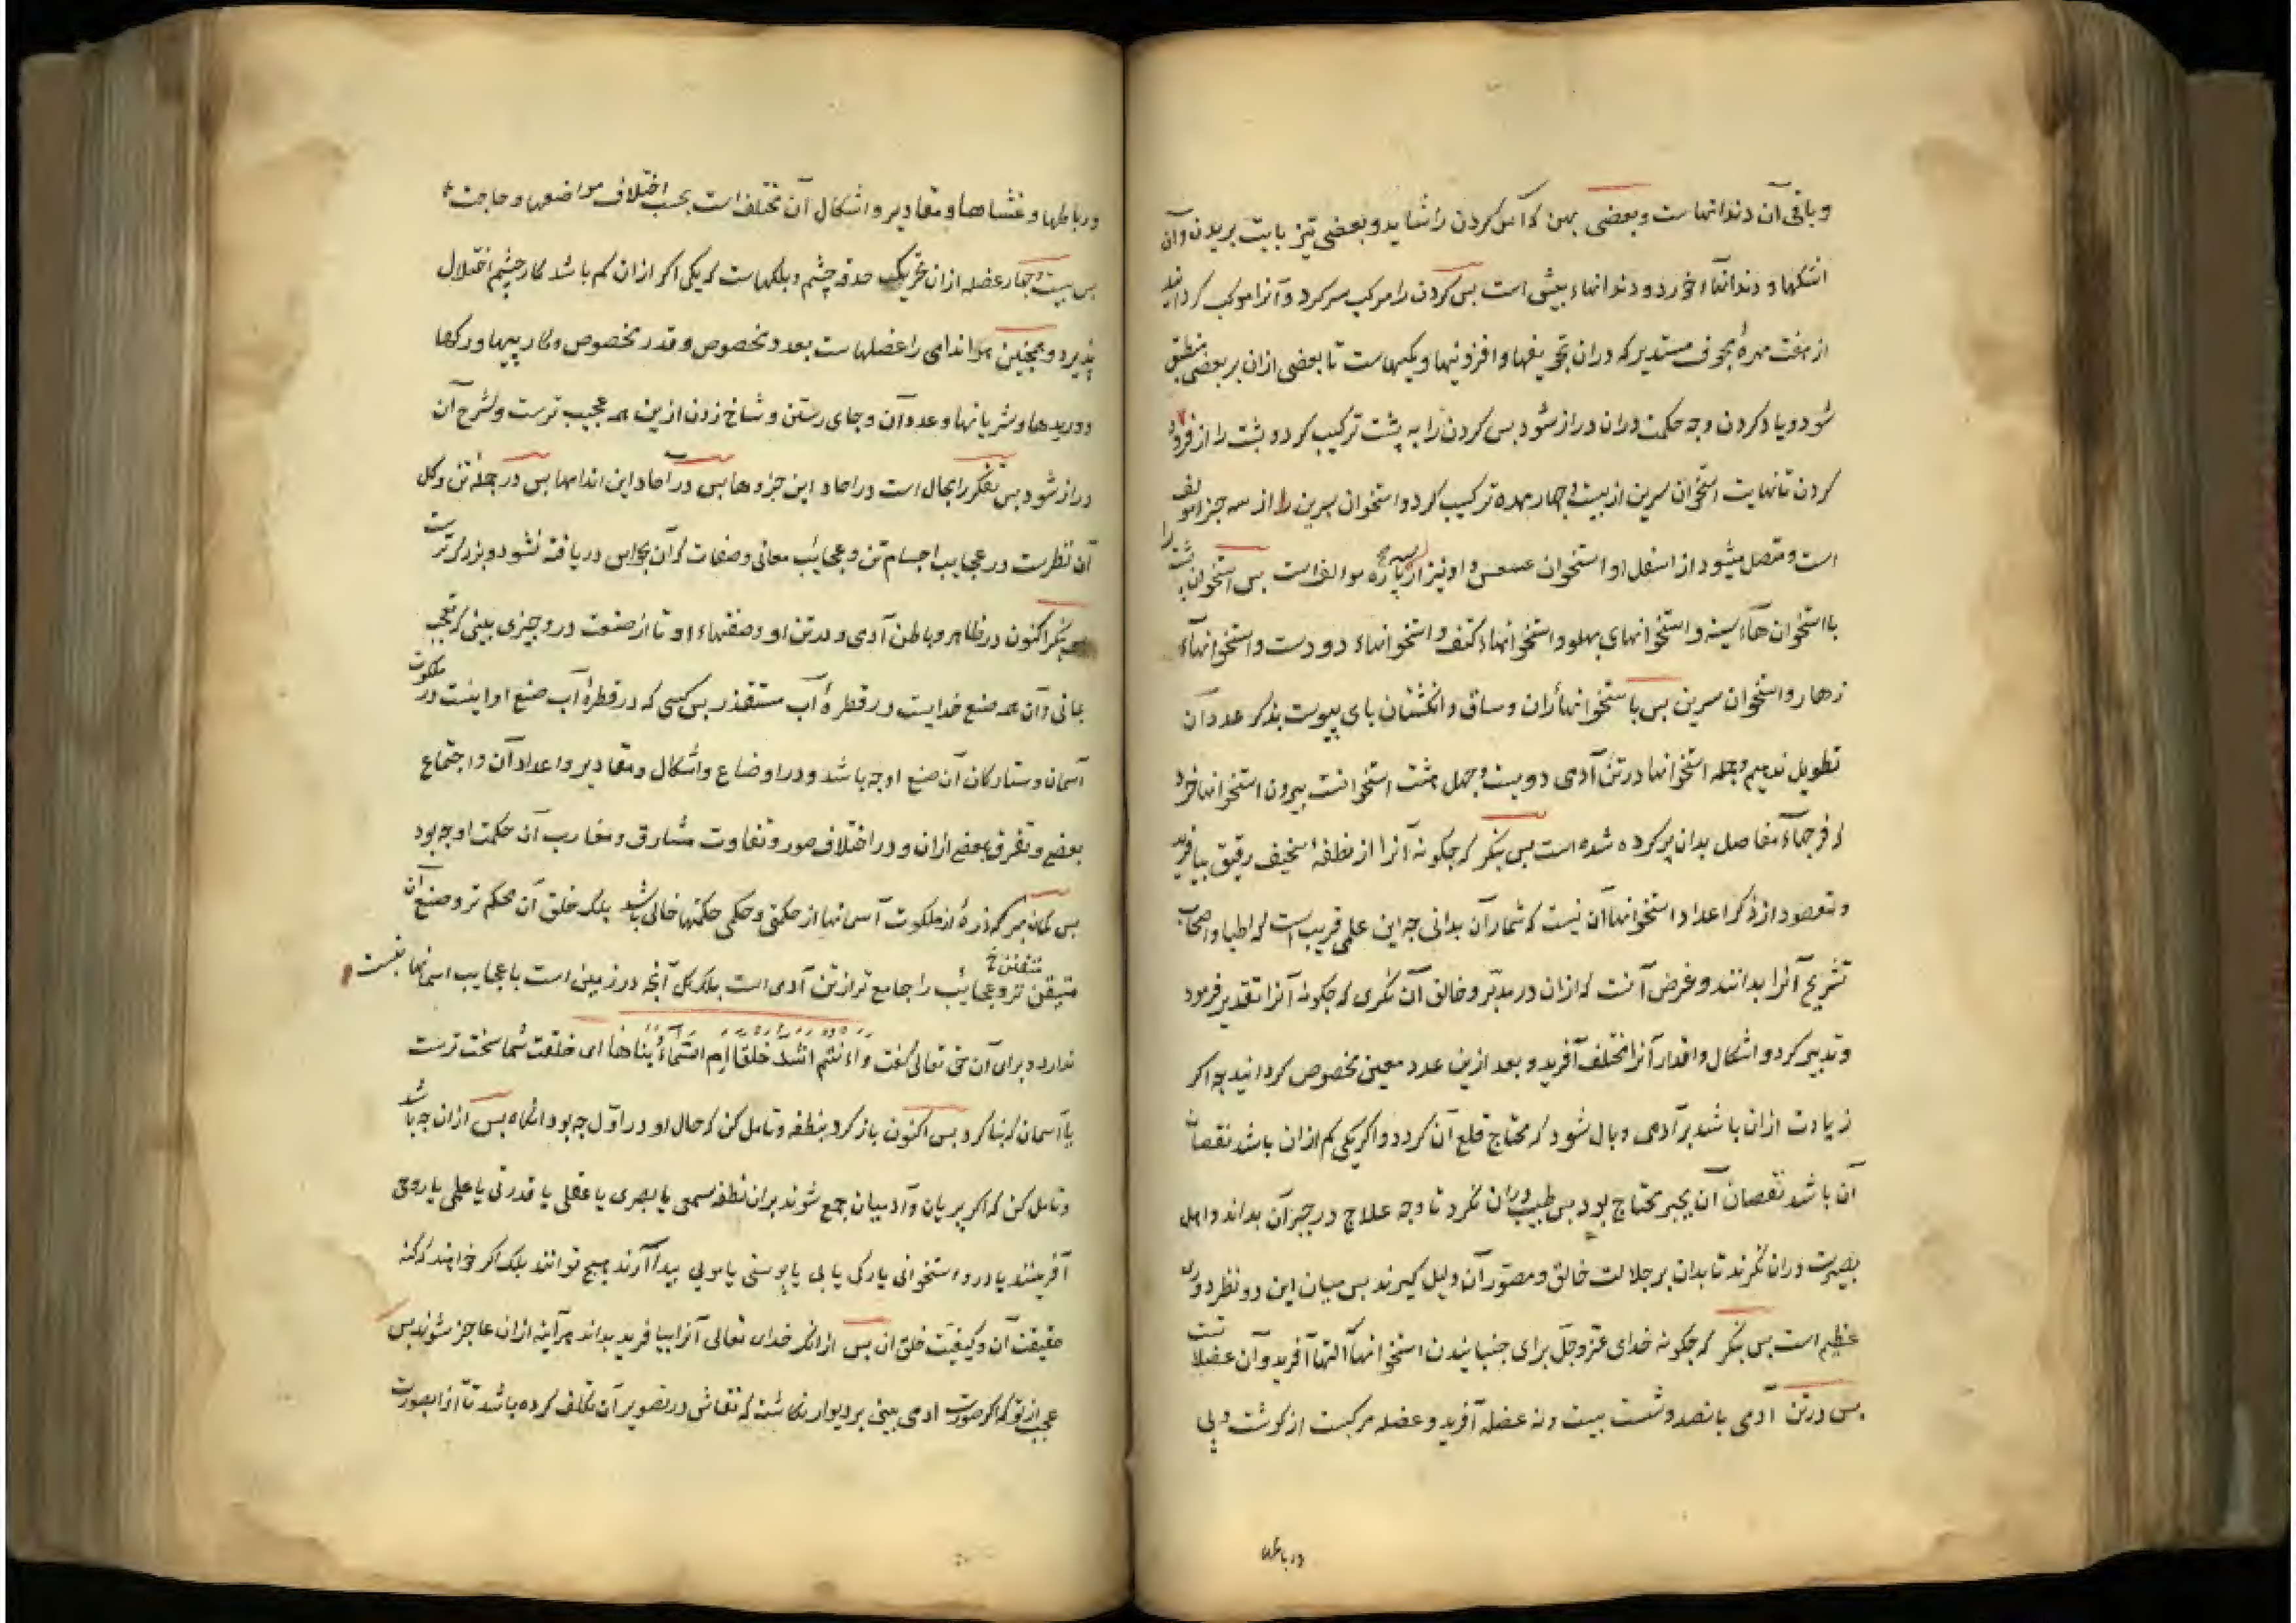 و باقی آن دندانهاست و بعضی پهن که آس کردن را شاید و بعضی تیز بابت بریدن و آن
اشکها و دندانهاء خورد و دندانهاء پیش است پس کردن را مرکب سر کرد و آنرا مرکب کردانید
از هفت مهرهٔ مجوف مستدیر که دران تجویفها و افزونیها و کمیهاست تا بعضی ازان بر بعضی منطبق
شود و یاد کردن وجه حکمت دران دراز شود بس کردن را به پشت ترکیب کرد و پشت را از فرود
کردن تا نهایت استخوان سرین از بیست و جهار مهره ترکیب کرد و استخوان سرین را از سه جزء مولف
است و متصل میشود از اسفل او استخوان عصعص و او نیز از سه پاره موالف است بس استخوان پشت را
با استخوان هاء سینه و استخوانهای پهلو و استخوانهاء کتف و استخوانهاء دو دست و استخوانهاء
زهار و استخوان سرین بس با ستخوانهاء ران و ساق و انکشتان بای پیوست بذکر عدد آن
تطویل ندهیم و جمله استخوانها در تن آدمی دویست و جهل هشت استخوانست بیرون استخوانهاء خرد
که فرجهاء مفاصل بدان پر کرده شده است بس بنکر که جکونه آنرا از نطفهٔ سخیف رقیق بیافرید
و مقصود از ذکر اعداد استخوانها آن نیست که شمار آن بدانی جه این علمی قریب است که اطبا و اصحاب
تشریح آنرا بدانند و غرض آنست که ازان در مدبّر و خالق آن نکری که جکونه آنرا تقدیر فرمود
و تدبیر کرد و اشکال و اقدار آنرا مختلف آفرید و بعد ازین عدد معین مخصوص کردانید جه اکر
زیادت ازان باشد بر آدمی وبال شود که محتاج قلع آن کردد و اکر یکی کم ازان باشد نقصان
آن باشد نقصان آن بجبر محتاج بود بس طبیب دران نکرد تا وجه علاج در جبر آن بداند و اهل
بصیرت دران نکرند تا بدان بر جلالت خالق و مصوّر آن دلیل کیرند بس میان این دو نظر دوری
عظیم است بس بنکر که جکونه خدای عزّ و جلّ برای جنبانیدن استخوانها آلتها آفرید و آن عضلات
بس در تن آدمی پانصد و شصت بیست و نه عضله آفرید و عضله مرکبست از کوشت و پی
و رباطها
و رباطها و غشاها و مقادیر و اشکال آن مختلف است بحسب اختلاف مواضعها و حاجت
بس بیست و جهار عضله ازان تحریک حدقه چشم و پلکهاست که یکی اکر ازان کم باشد کار چشم اختلال
پذیرد و همجنین هر اندامی را عضلهاست بعدد مخصوص و قدر مخصوص و کار پیها و رکها
و وریدها و شریانها و عدد آن و جای رستن و شاخ زدن ازین همه عجیب ترست و شرح آن
دراز شود بس تفکر را مجال است در احاد این جزوها بس در آحاد این اندامها بس در جمله تن و کل
آن نظرست در عجایب اجسام تن و عجایب معانی و صفات که آن بحواس دریافته نشود و بزرکتر ست
بنکر اکنون در ظاهر و باطن آدمی و در تن او و صفتهاء او تا از صنعت درو چیزی بینی که تعجب
بمانی و آن همه صنع خدایست در قطرهٔ آب مستقذر بس کسی که در قطرهٔ آب صنع او اینست در ملکوت
آسمان و ستارکان آن صنع او جه باشد و در اوضاع و اشکال و مقادیر و اعداد آن و اجتماع
بعضی و تفرق بعضی ازان و در اختلاف صور و تفاوت مشارق و مغارب آن حکمت او جه بود
بس کمان مبر که ذرهٔ از ملکوت آسمانها از حکمتی و حکمی حکمتها خالی باشد بلک خلق آن محکم تر و صنع آن
متیقن تر و عجایب را جامع تر از تن آدمی است بلک کل آنچه در زمین است با عجایب اسمانها نسبت
متقن خ
ندارد و برای آن حق تعالی کفت وَاَءَنْتُم اَشَدُّ خَلْقًا اَمِ السَّمَآءُ بَنَاهَا ای خلقت شما سخت ترست
یا آسمان که بنا کرد بس اکنون باز کرد بنطفه و تامل کن که حال او در اوّل جه بود انکاه بس ازان جه باشد
و تامل کن که اکر پریان و آدمیان جمع شوند بران نطفه سمعی یا بصری یا عقلی یا قدرتی یا علمی یا روحی
آفرینند یا درو استخوانی یا رکی یا پی یا پوستی یا مویی پیدا آرند هیچ توانند بلک اکر خواهند که کنه
حقیقت آن و کیفیت خلق ان بس ازانکه خدای تعالی آنرا بیافرید بداند هر آینه ازان عاجز شوند بس
عجب از تو که اکر صورت ادمی بینی بر دیوار نکاشته که نقاش در تصویر آن تکلف کرده باشد تا آنرا بصورت